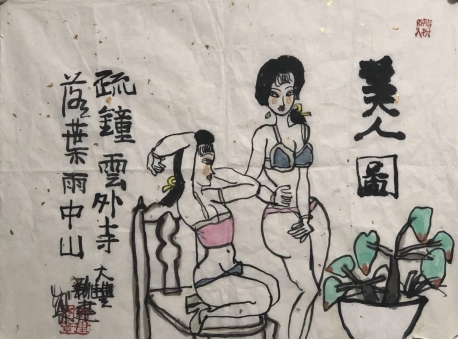 美人图
疏鐘雲外寺
落葉雨中山
大豐